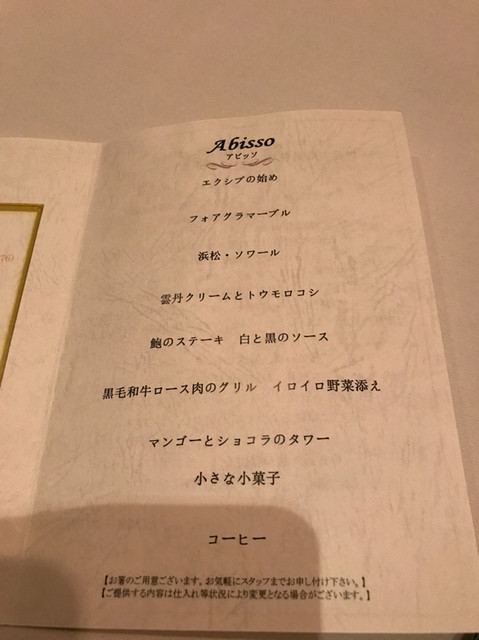 Abisso
アビッソ
エクシブの始め
フォアグラマーブル
浜松・ソワール
雲丹クリームとトウモロコシ
鮑のステーキ　白と黒のソース
黒毛和牛ロース肉のグリル　イロイロ野菜添え
マンゴーとショコラのタワー
小さな小菓子
コーヒー
【お箸のご用意ございます。お気軽にスタッフまでお申し付け下さい。】
【ご提供する内容は仕入れ等状況により変更となる場合がございます。】